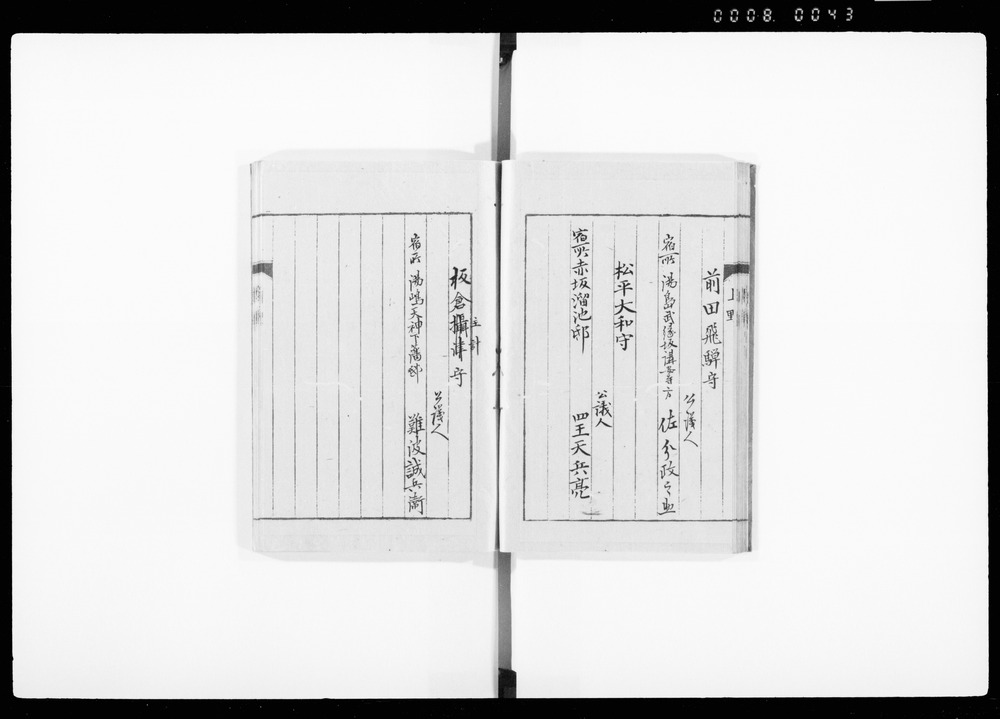 0008. 0043
上野
前田飛騨守
公議人
宿所 湯島武縁坂講安寺方 佐分政之助
松平大和守
公議人
宿所赤坂溜池邸 四王天兵亮
主計
板倉攝津守
公議人
宿所 湯嶋天神下藩邸 難波誠兵衛